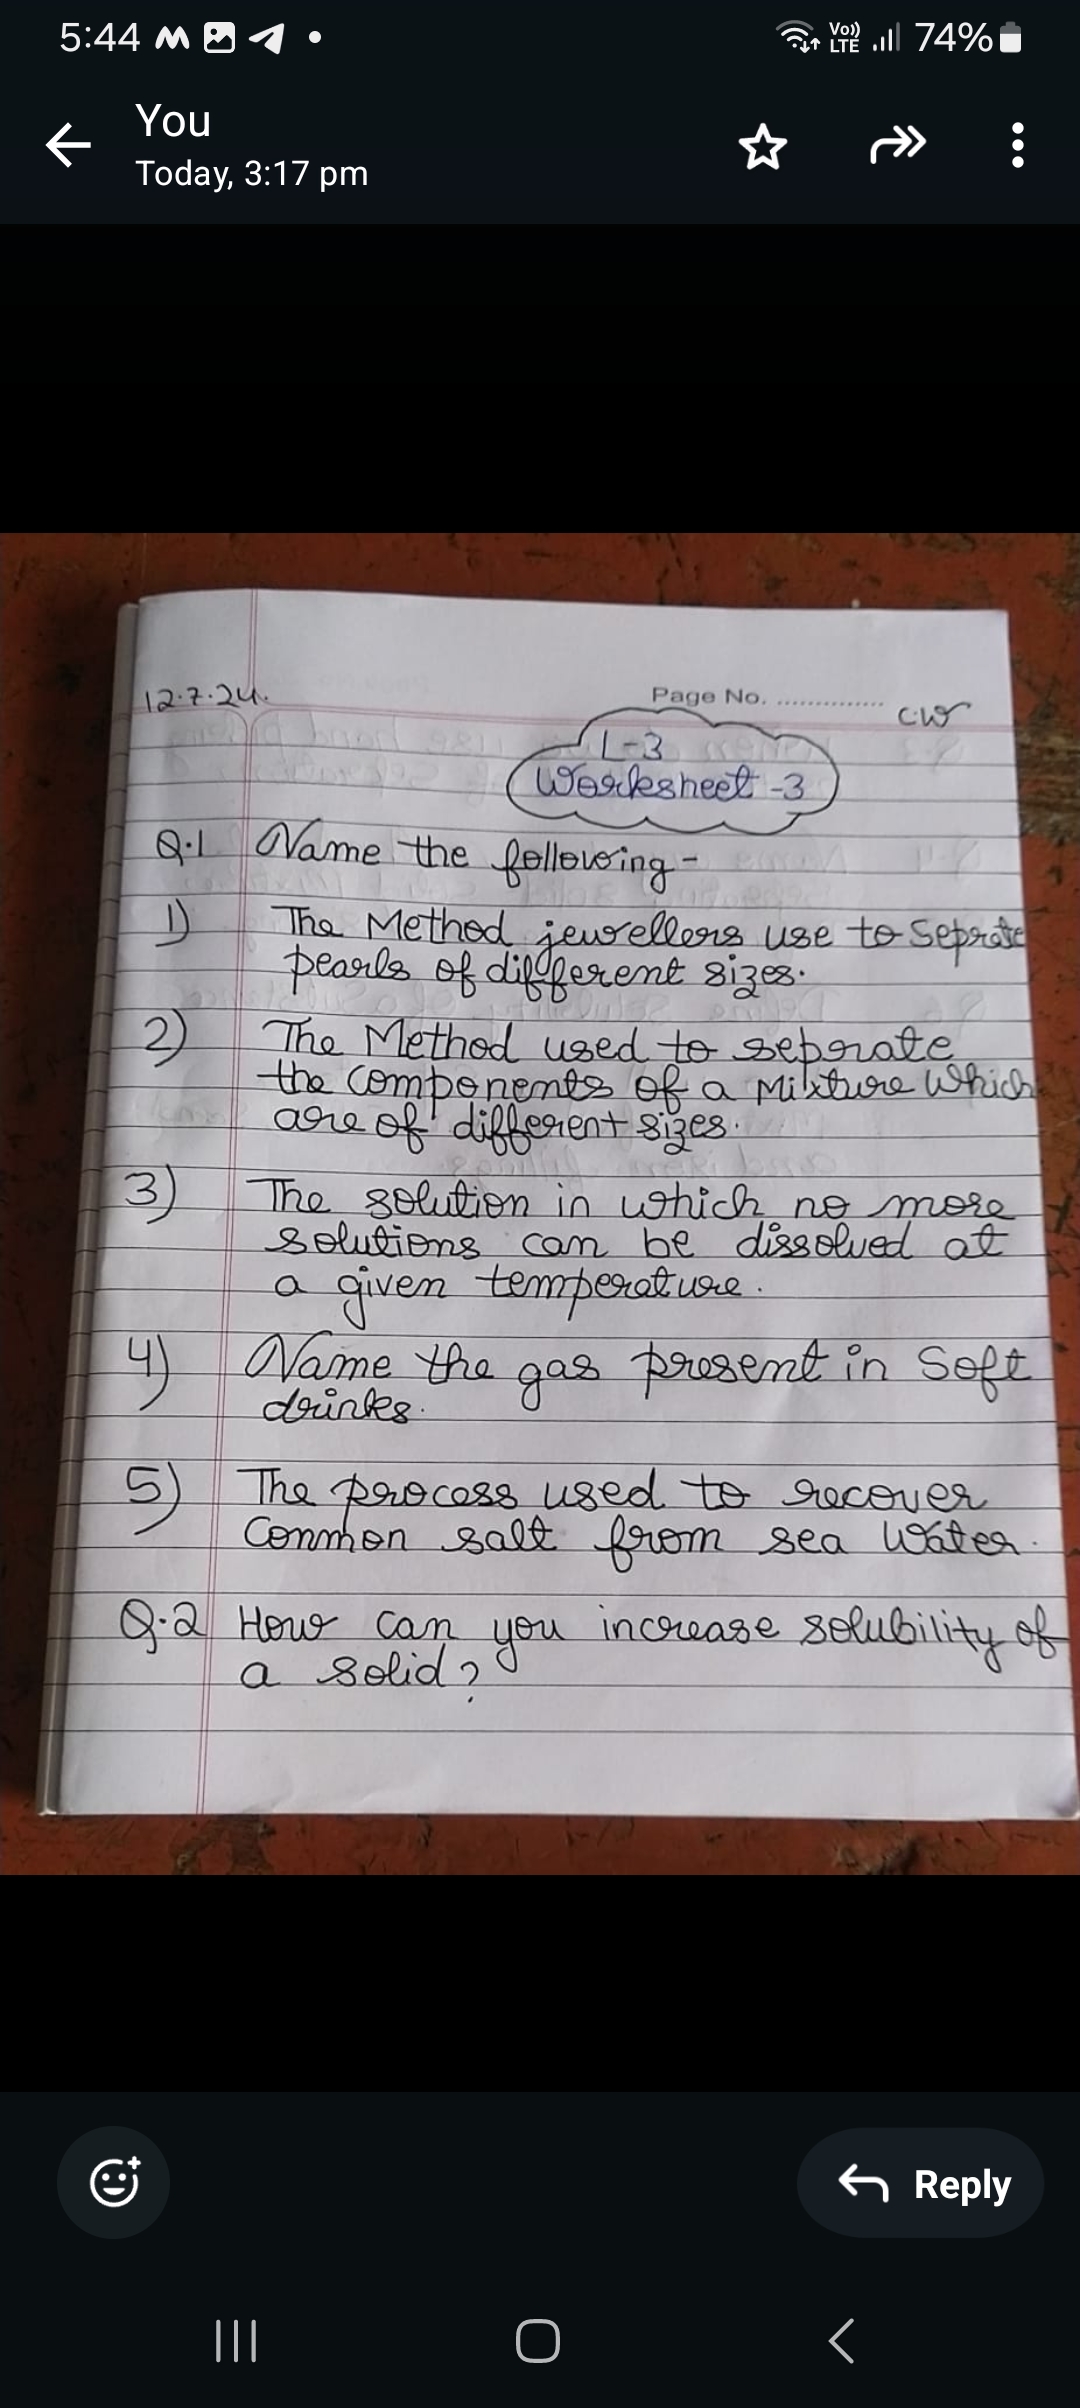 5:44
Vo)) LTE 74%
You
Today, 3:17 pm
12.7.24.
Page No. ...............
C.W
L-3
Worksheet -3
Q.1 Name the following -
1) The Method jewellers use to Seprate
pearls of different sizes.
2) The Method used to seprate
the components of a Mixture which
are of different sizes.
3) The solution in which no more
solutions can be dissolved at
a given temperature.
4) Name the gas present in Soft
drinks.
5) The process used to recover
Common salt from sea Water.
Q.2 How can you increase solubility of
a solid?
Reply